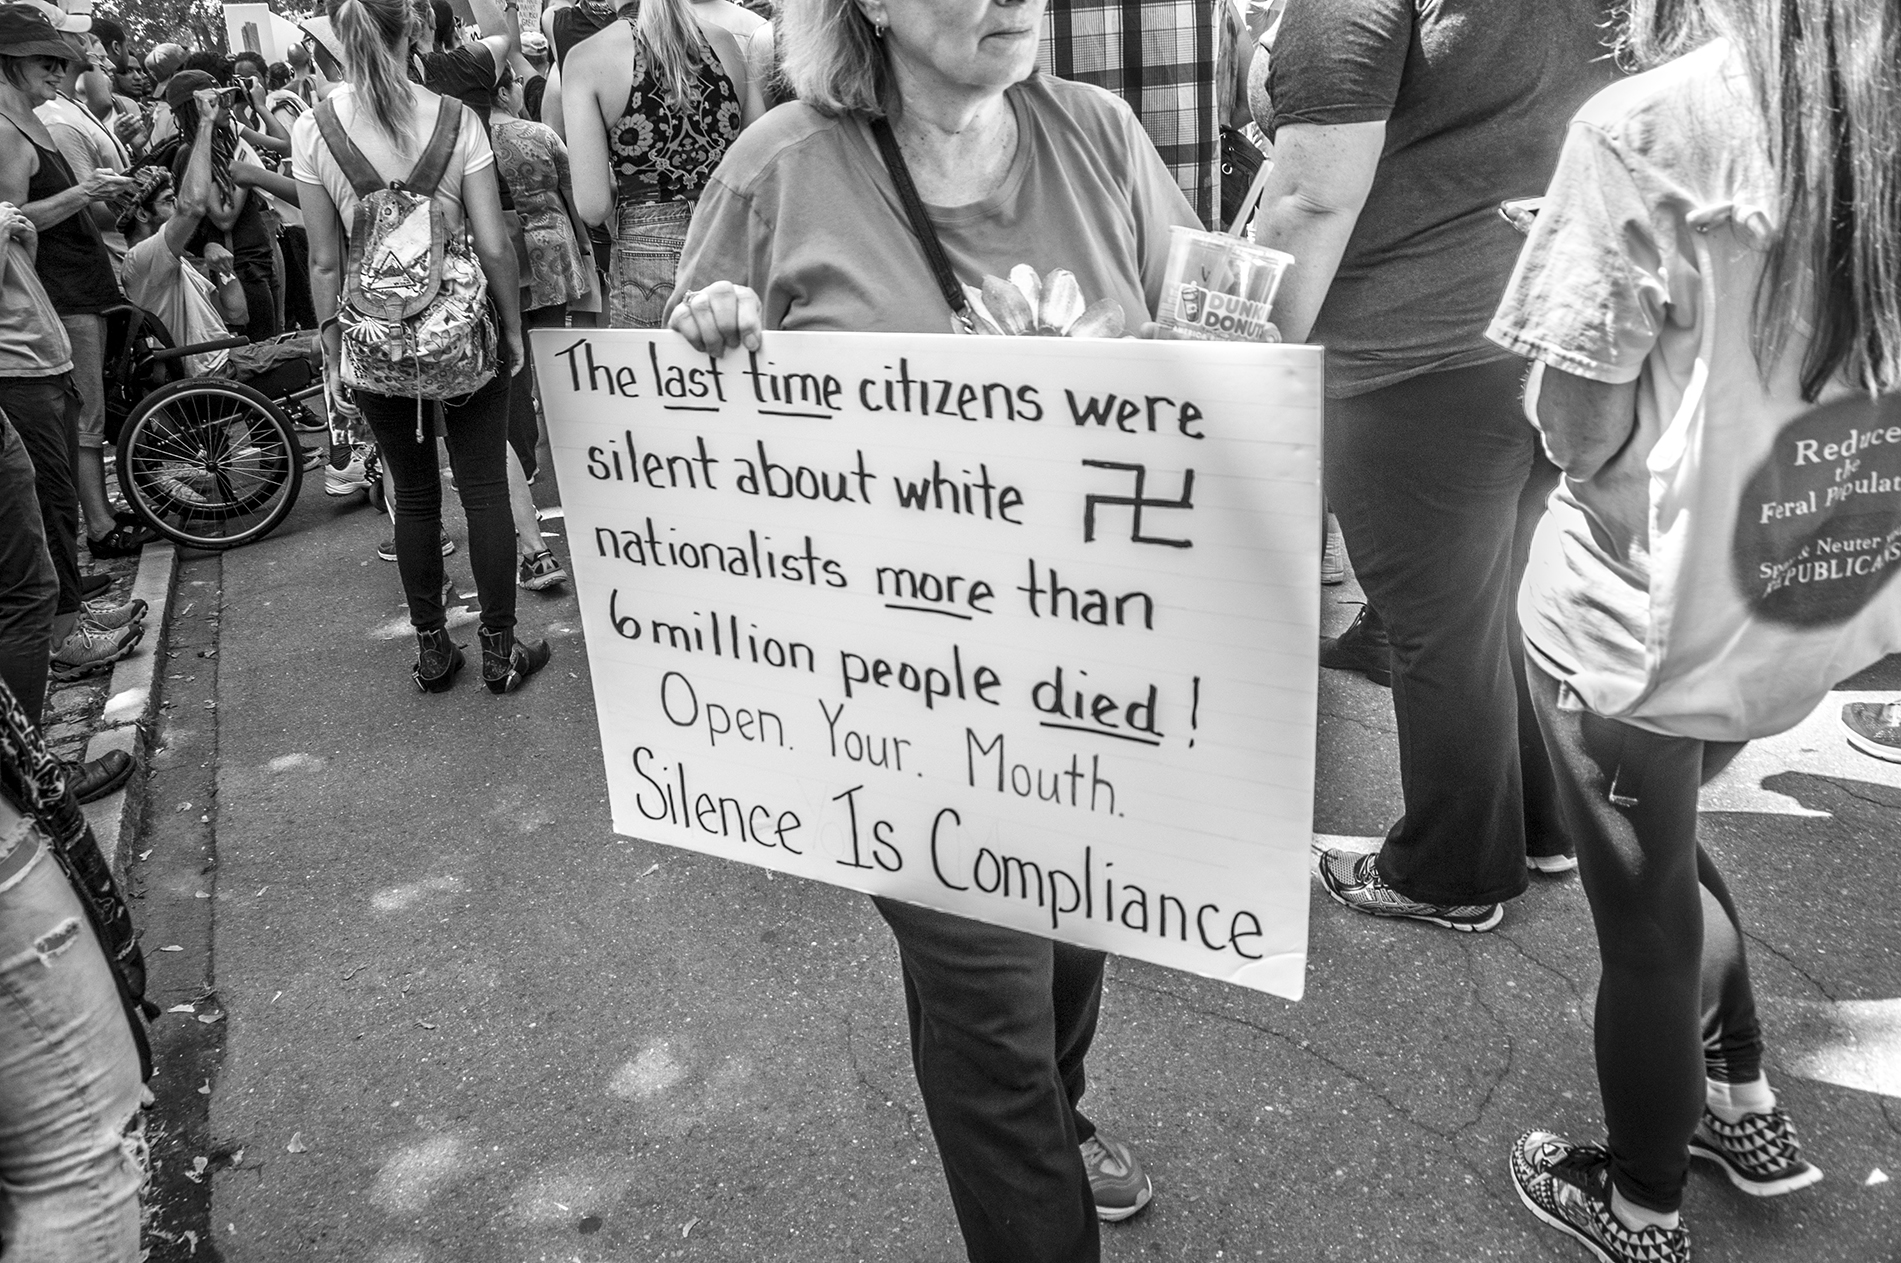 The last time citizens were
silent about white
nationalists more than
6 million people died!
Open. Your. Mouth.
Silence Is Compliance
DUNK
DONUT
Reduce
the
Feral Populat
& Neuter